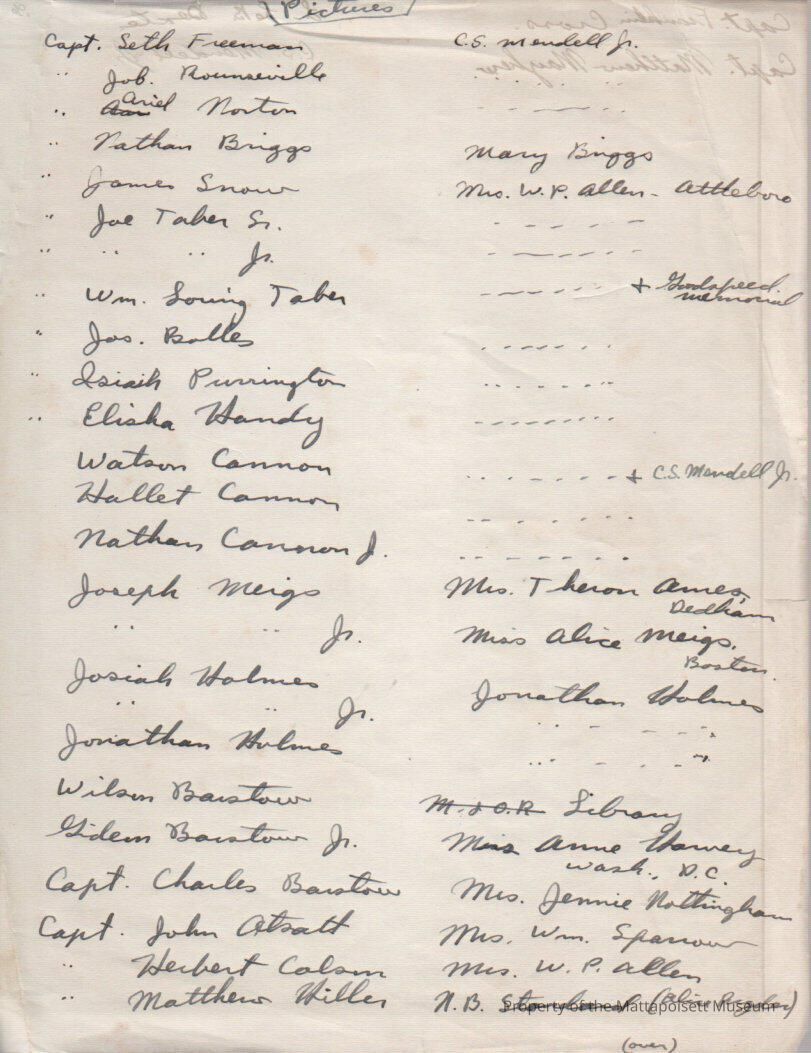 Pictures
Capt. Seth Freeman C.S. Mendell Jr.
" Job. Rounseville " " " "
" Ariel Norton " " " "
" Nathan Briggs Mary Briggs
" James Snow Mrs. W.P. Allen - Attleboro
" Joe Taber Sr. " " " "
" " " Jr. " " " "
" Wm. Loring Taber " " " " + Goodspeed
memorial
" Jos. Bolles " " " "
" Isiaih Purrington " " " "
" Elisha Handy " " " "
Watson Cannon " " " " + C.S. Mendell Jr.
Hallet Cannon " " " "
Nathan Cannon J. " " " "
Joseph Meigs Mrs. Theron Ames,
Dedham
" " Jr. Miss Alice Meigs,
Boston.
Josiah Holmes Jonathan Holmes
" " Jr. " " "
Jonathan Holmes " " "
Wilson Barstow M. & O.R. Library
Gideon Barstow Jr. Miss Anne Harvey
Wash., D.C.
Capt. Charles Barstow Mrs. Jennie Nottingham
Capt. John Atsatt Mrs. Wm. Sparrow
" Herbert Colson Mrs. W. P. Allen
" Matthew Hiller N.B.
Property of the Mattapoisett Museum
(over)